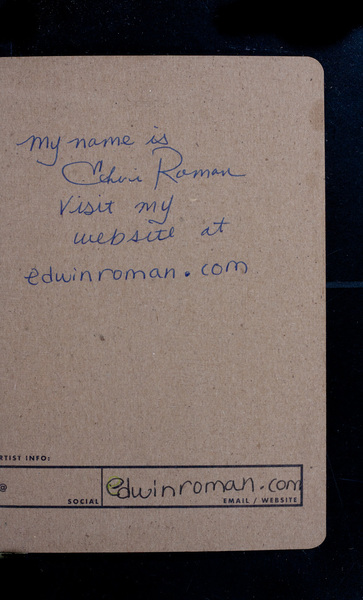 my name is
Edwin Roman
Visit my
website at
edwinroman.com
RTIST INFO:
@
SOCIAL
edwinroman.com
EMAIL / WEBSITE